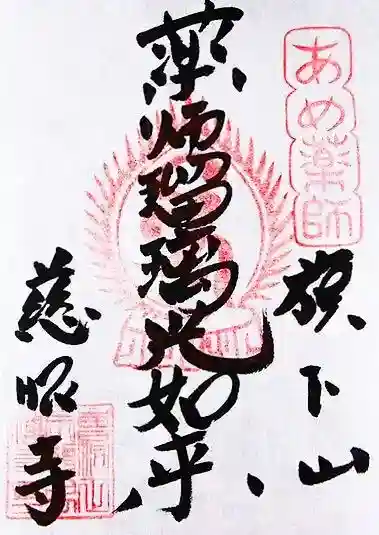 あめ薬師
旗下山
薬師瑠璃光如来
慈昭寺